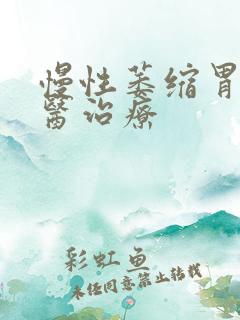 慢性萎缩胃
醫治療
彩虹鱼
未经同意禁止转载